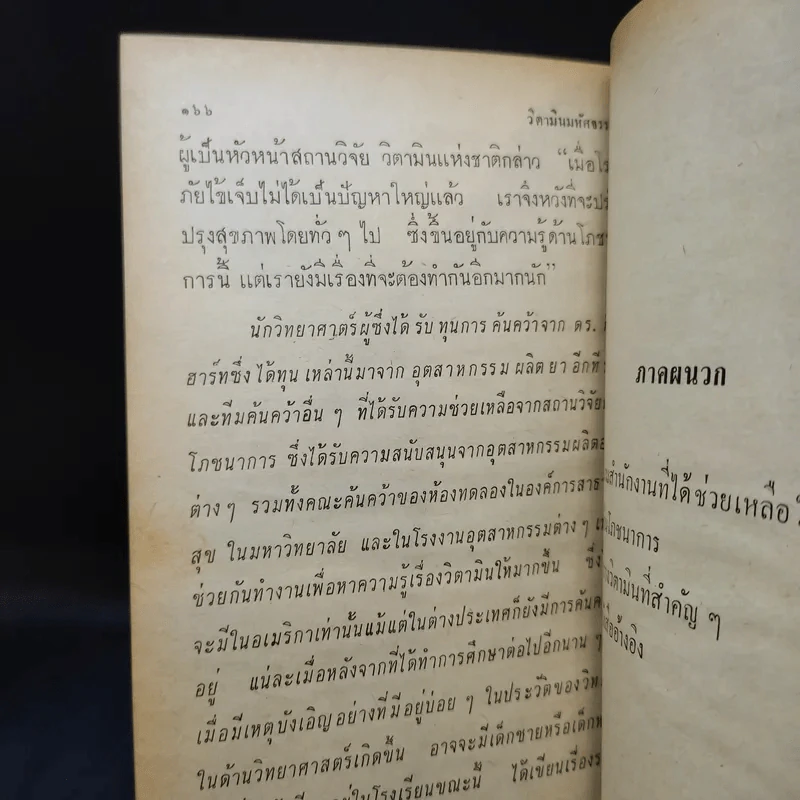 ๑๖๖
วิตามินมหัศจรร
ผู้เป็นหัวหน้าสถานวิจัย วิตามินแห่งชาติกล่าว “เมื่อโร
ภัยไข้เจ็บไม่ได้เป็นปัญหาใหญ่แล้ว เราจึงหวังที่จะปรั
ปรุงสุขภาพโดยทั่ว ๆ ไป ซึ่งขึ้นอยู่กับความรู้ด้านโภช
การนี้ แต่เรายังมีเรื่องที่จะต้องทำกันอีกมากนัก”
นักวิทยาศาตร์ผู้ซึ่งได้ รับ ทุนการ ค้นคว้าจาก ดร.
ฮาร์ทซึ่ง ได้ทุน เหล่านี้มาจาก อุตสาหกรรม ผลิต ยา อีกที
และทีมค้นคว้าอื่น ๆ ที่ได้รับความช่วยเหลือจากสถานวิจัย
โภชนาการ ซึ่งได้รับความสนับสนุนจากอุตสาหกรรมผลิต
ต่าง ๆ รวมทั้งคณะค้นคว้าของห้องทดลองในองค์การสาธ
สุข ในมหาวิทยาลัย และในโรงงานอุตสาหกรรมต่าง ๆ
ช่วยกันทำงานเพื่อหาความรู้เรื่องวิตามินให้มากขึ้น ซึ่ง
จะมีในอเมริกาเท่านั้นแม้แต่ในต่างประเทศก็ยังมีการค้นค
อยู่ แน่ละเมื่อหลังจากที่ได้ทำการศึกษาต่อไปอีกนาน ๆ
เมื่อมีเหตุบังเอิญอย่างที่มีอยู่บ่อย ๆ ในประวัติของวิท
ในด้านวิทยาศาสตร์เกิดขึ้น อาจจะมีเด็กชายหรือเด็กห
อยู่ในโรงเรียนขณะนี้ ได้เขียนเรื่องร
ภาคผนวก
สำนักงานที่ได้ช่วยเหลือ
โภชนาการ
วิตามินที่สำคัญ ๆ
อ้างอิง